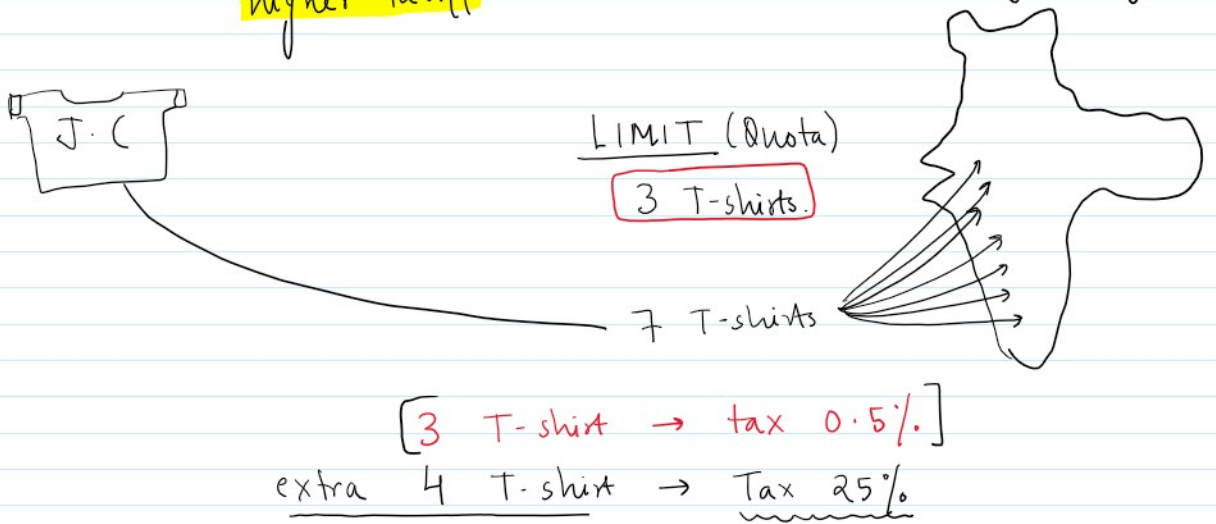 higher tariff
J.C
LIMIT (Quota)
3 T-shirts.
7 T-shirts
[3 T-shirt → tax 0.5%.]
extra 4 T-shirt → Tax 25%